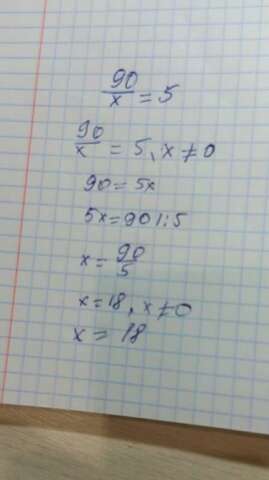 90/x = 5
90/x = 5, x ≠ 0
90 = 5x
5x = 90 | : 5
x = 90/5
x = 18, x ≠ 0
x = 18